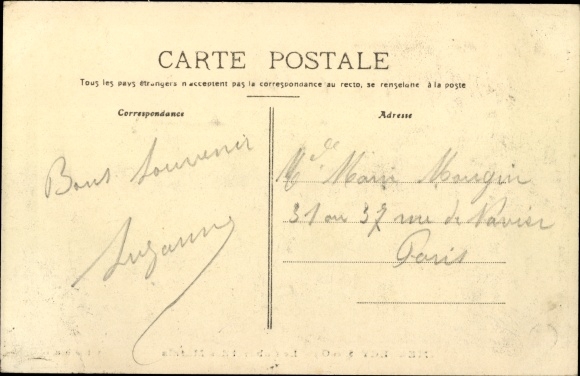 CARTE POSTALE
Tous les pays étrangers n'acceptent pas la correspondance au recto, se renseigne à la poste
Correspondance
Adresse
Bons Souvenir
Suzanne
Mlle Marie Mangin
31 au 37 rue de
Paris